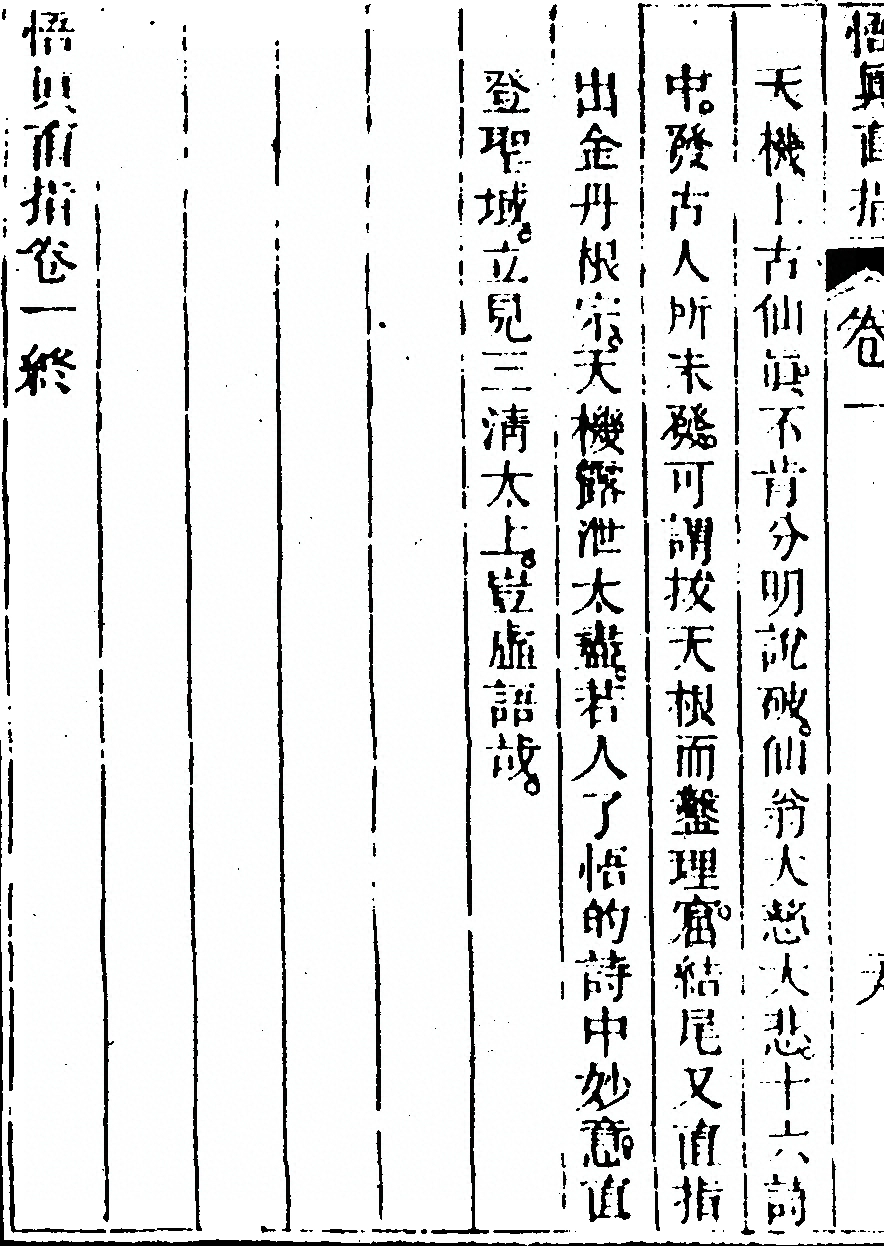 悟真直指 卷一
天機上古仙真不肯分明說破。仙翁大慈大悲。十六詩
中。發古人所未發。可謂拔天根而鑿理窟。結尾又直指
出金丹根宗。天機露泄太盡。若人了悟的詩中妙意。直
登聖域。立見三清太上。豈虛語哉。
悟真直指卷一終